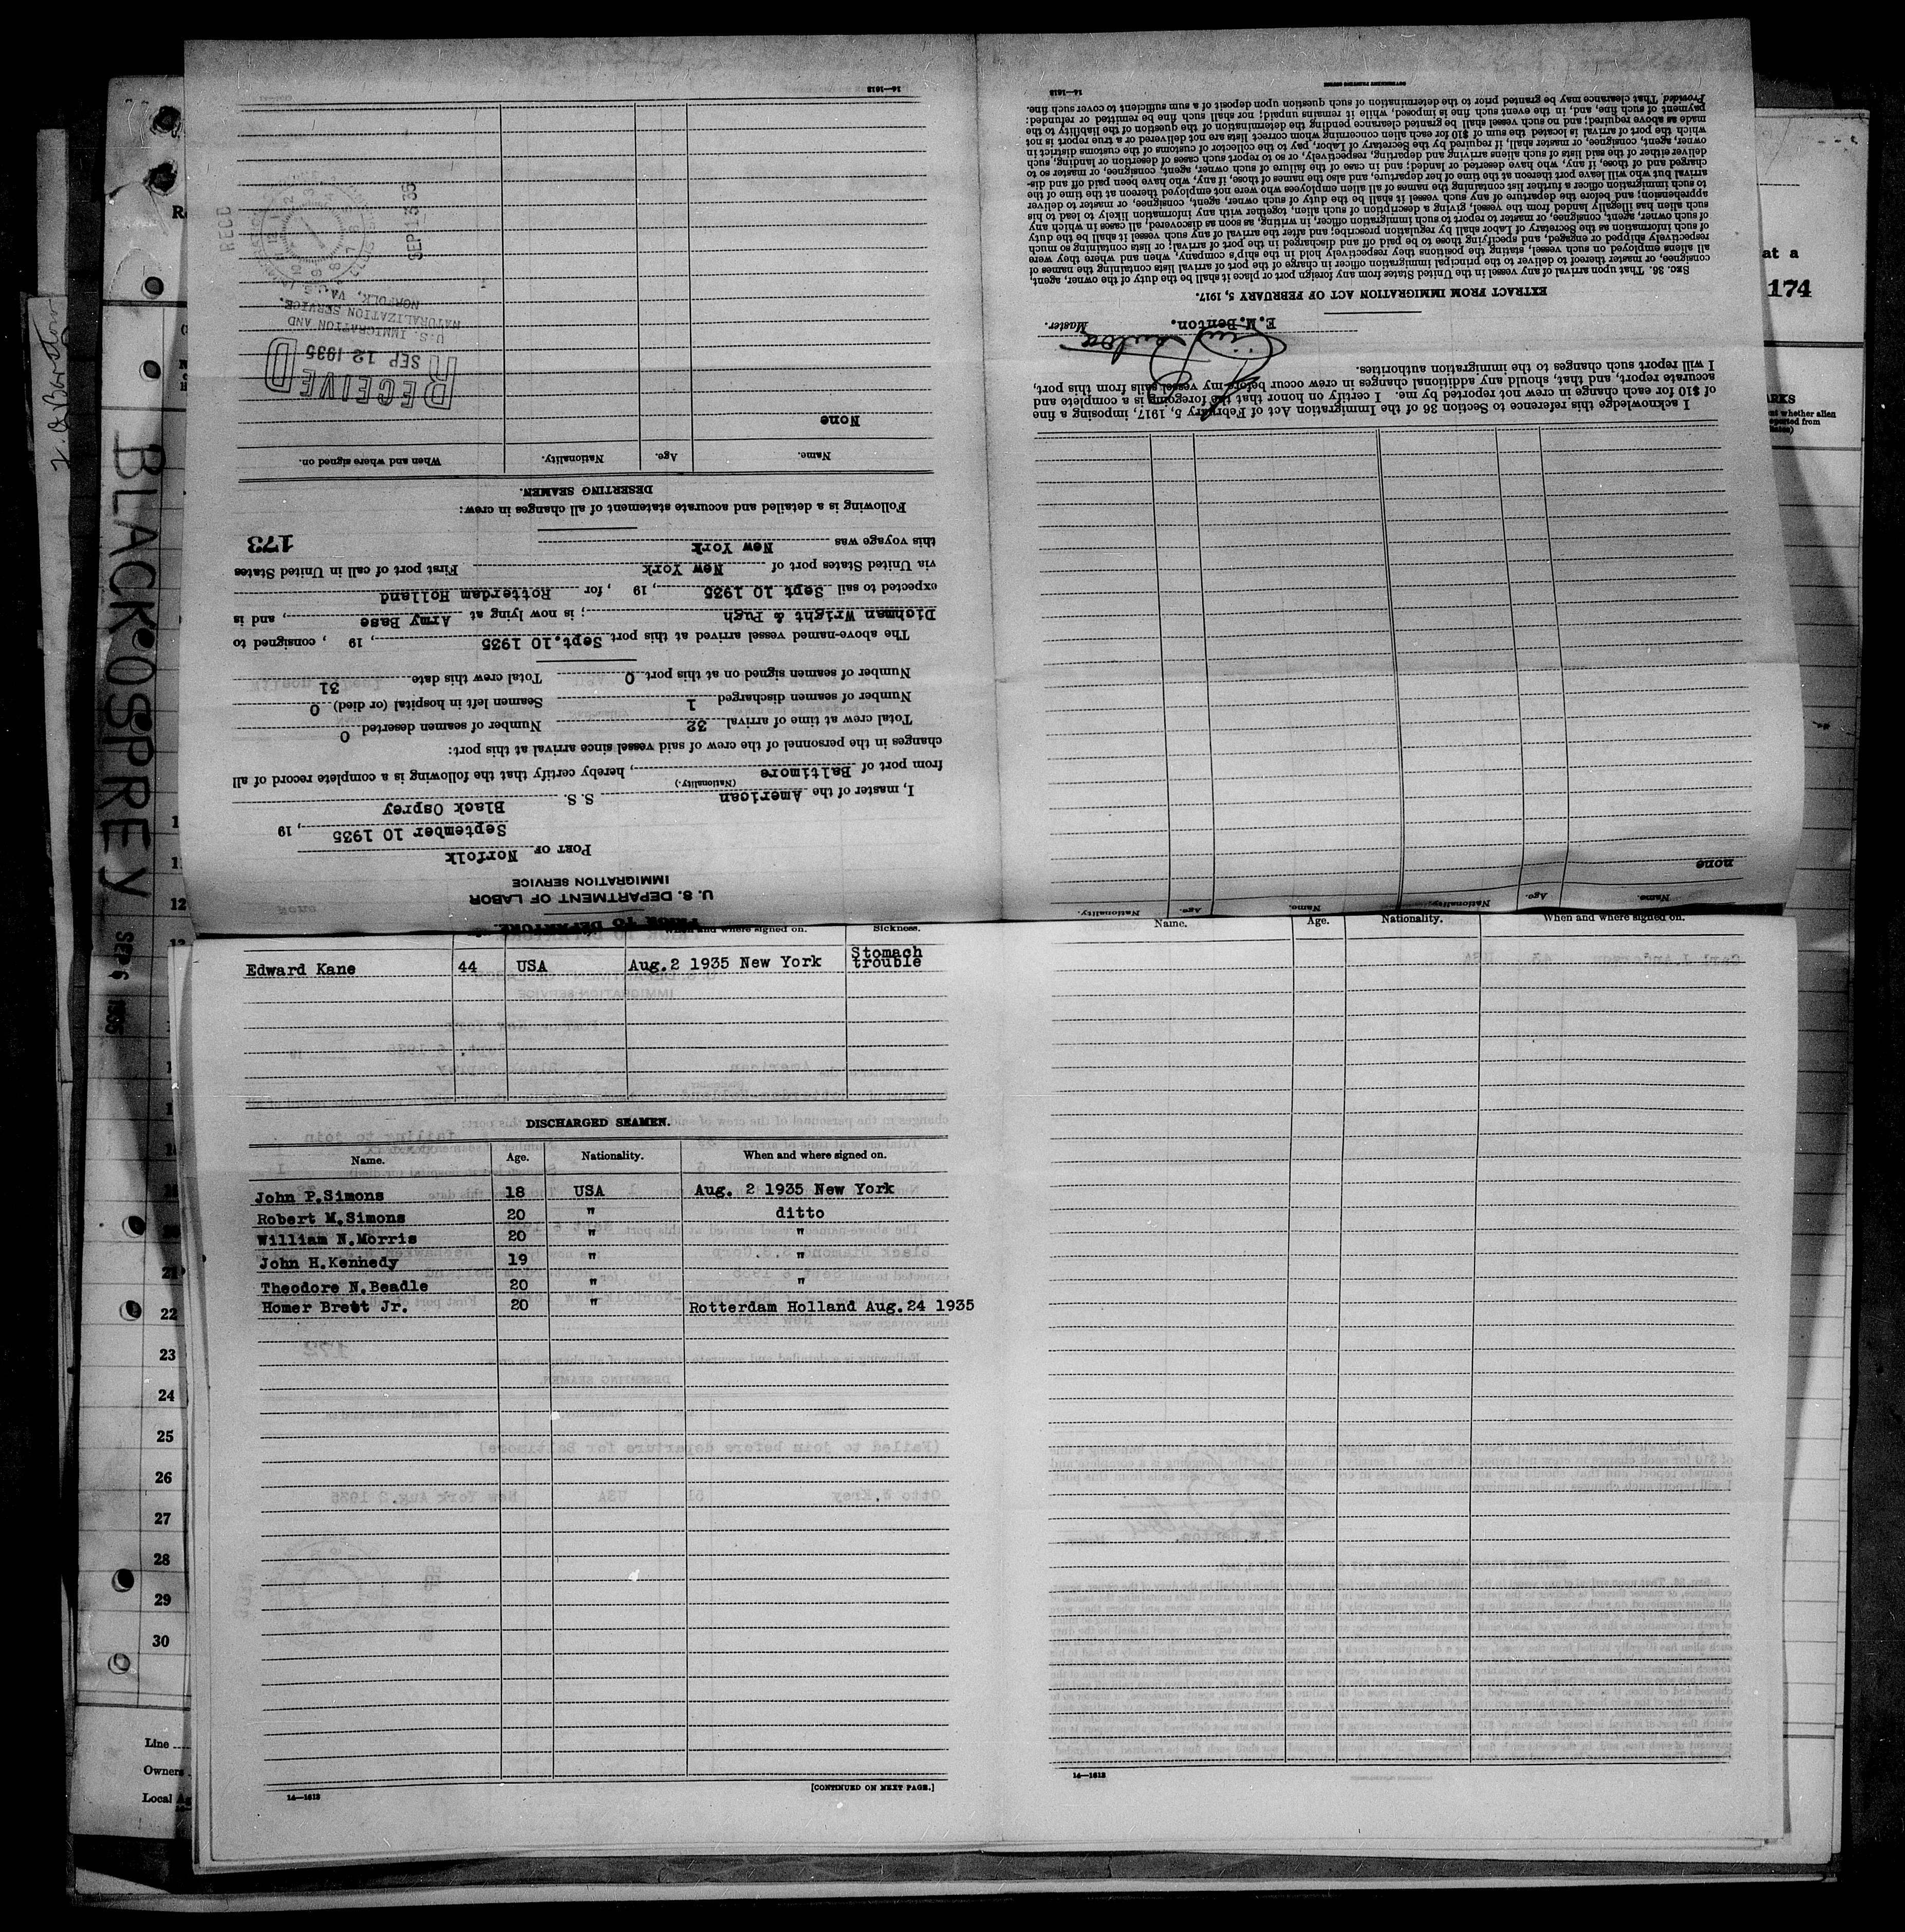 U. S. DEPARTMENT OF LABOR
IMMIGRATION SERVICE
PORT OF Norfolk
September 10 1935, 19
I, master of the American S. S. Black Osprey
(Nationality.)
from port of Baltimore, hereby certify that the following is a complete record of all
changes in the personnel of the crew of said vessel since arrival at this port:
Total crew at time of arrival 32 Number of seamen deserted 0
Number of seamen discharged 1 Seamen left in hospital (or died) 0
Number of seamen signed on at this port 0 Total crew this date 31
The above-named vessel arrived at this port Sept.10 1935, 19 , consigned to
Dichman Wright & Pugh; is now lying at Army Base, and is
expected to sail Sept 10 1935, 19 , for Rotterdam Holland
via United States port of New York First port of call in United States
this voyage was New York
173
Following is a detailed and accurate statement of all changes in crew:
DESERTING SEAMEN.
Name. Age. Nationality. When and where signed on.
None
RECEIVED
SEP 12 1935
U. S. IMMIGRATION AND
NATURALIZATION SERVICE.
NORFOLK, VA.
REC'D
16—1613
Name. Age. Nationality. Name. Age. Nationality.
none
I acknowledge this reference to Section 36 of the Immigration Act of February 5, 1917, imposing a fine
of $10 for each change in crew not reported by me. I certify on honor that the foregoing is a complete and
accurate report, and that, should any additional changes in crew occur before my vessel sails from this port,
I will report such changes to the immigration authorities.
E.M.Benton. Master.
EXTRACT FROM IMMIGRATION ACT OF FEBRUARY 5, 1917.
SEC. 36. That upon arrival of any vessel in the United States from any foreign port or place it shall be the duty of the owner, agent,
consignee, or master thereof to deliver to the principal immigration officer in charge of the port of arrival lists containing the names of
all aliens employed on such vessel, stating the positions they respectively hold in the ship's company, when and where they were
respectively shipped or engaged, and specifying those to be paid off and discharged in the port of arrival; or lists containing so much
of such information as the Secretary of Labor shall by regulation prescribe; and after the arrival of any such vessel it shall be the duty
of such owner, agent, consignee, or master to report to such immigration officer, in writing, as soon as discovered, all cases in which any
such alien has illegally landed from the vessel, giving a description of such alien, together with any information likely to lead to his
apprehension; and before the departure of any such vessel it shall be the duty of such owner, agent, consignee, or master to deliver
to such immigration officer a further list containing the names of all alien employees who were not employed thereon at the time of the
arrival but who will leave port thereon at the time of her departure, and also the names of those, if any, who have been paid off and dis-
charged and of those, if any, who have deserted or landed; and in case of the failure of such owner, agent, consignee, or master so to
deliver either of the said lists of such aliens arriving and departing, respectively, or so to report such cases of desertion or landing, such
owner, agent, consignee, or master shall, if required by the Secretary of Labor, pay to the collector of customs of the customs district in
which the port of arrival is located the sum of $10 for each alien concerning whom correct lists are not delivered or a true report is not
made as above required; and no such vessel shall be granted clearance pending the determination of the question of the liability to the
payment of such fine, and, in the event such fine is imposed, while it remains unpaid; nor shall such fine be remitted or refunded:
Provided, That clearance may be granted prior to the determination of such question upon deposit of a sum sufficient to cover such fine.
16—1613
GOVERNMENT PRINTING OFFICE
174
BLACK OSPREY
SEP 6 1935
When and where signed on. Sickness.
Edward Kane 44 USA Aug.2 1935 New York Stomach trouble
DISCHARGED SEAMEN.
Name. Age. Nationality. When and where signed on.
John P.Simons 18 USA Aug. 2 1935 New York
Robert M.Simons 20 " ditto
William N.Morris 20 " "
John H.Kennedy 19 " "
Theodore N.Beadle 20 " "
Homer Brett Jr. 20 " Rotterdam Holland Aug.24 1935
[CONTINUED ON NEXT PAGE.]
16—1613
Name. Age. Nationality. When and where signed on.
16—1613
22
23
24
25
26
27
28
29
30
Line
Owners
Local